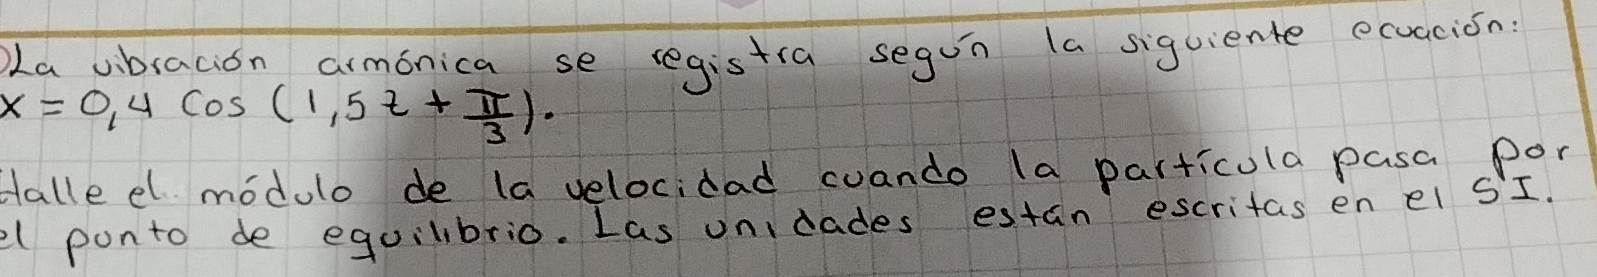 La vibración armónica se registra según la siguiente ecuación:
x = 0,4 cos (1,5 t + π/3).
Halle el módulo de la velocidad cuando la partícula pasa por
el punto de equilibrio. Las unidades están escritas en el SI.